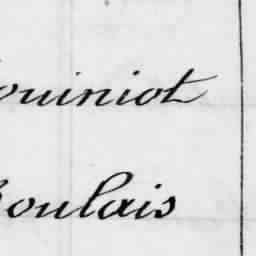 ouiniot
oulais